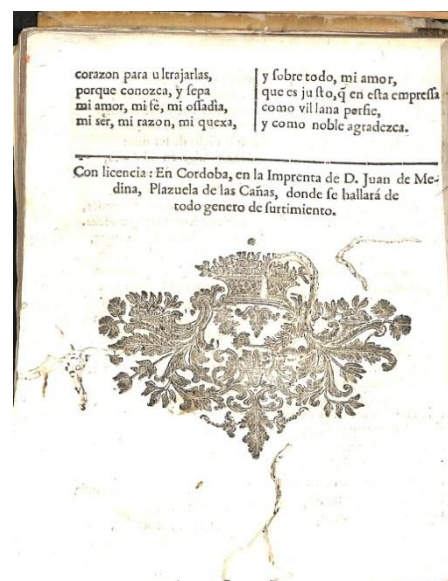 corazon para ultrajarlas,
porque conozca, y ſepa
mi amor, mi fè, mi oſſadia,
mi sèr, mi razon, mi quexa,
y ſobre todo, mi amor,
que es juſto, q̃ en eſta empreſſa
como villana porfie,
y como noble agradezca.
Con licencia: En Cordoba, en la Imprenta de D. Juan de Me-
dina, Plazuela de las Cañas, donde ſe hallarà de
todo genero de ſurtimiento.